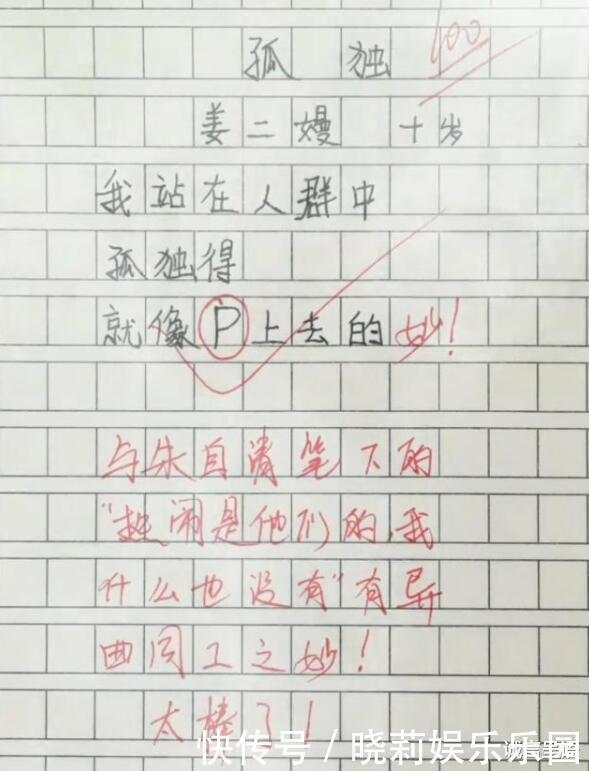 孤独 100
姜二嫚 十岁
我站在人群中
孤独得
就像P上去的 妙!
与朱自清笔下的
“热闹是他们的,我
什么也没有”有异
曲同工之妙!
太棒了!
快传号/晓莉娱乐乐园